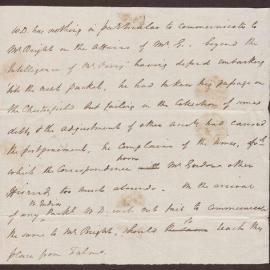 W.D. has nothing in particular to communicate to
Mr Bright on the affairs of Mr G. beyond the
Intelligence of Mr having defered embarking
till the next packet, he had taken his passage on
the Chesterfield but failing in the Collection of some
debts & the adjustment of other accts had caused
the postponement, he complains of the times, of
which the Correspondence from Mr Gordons other
friends too much abounds. On the arrival
of any Packet W.D. will not fail to communicate
the same to Mr Bright, should the same reach this
place from Falmo